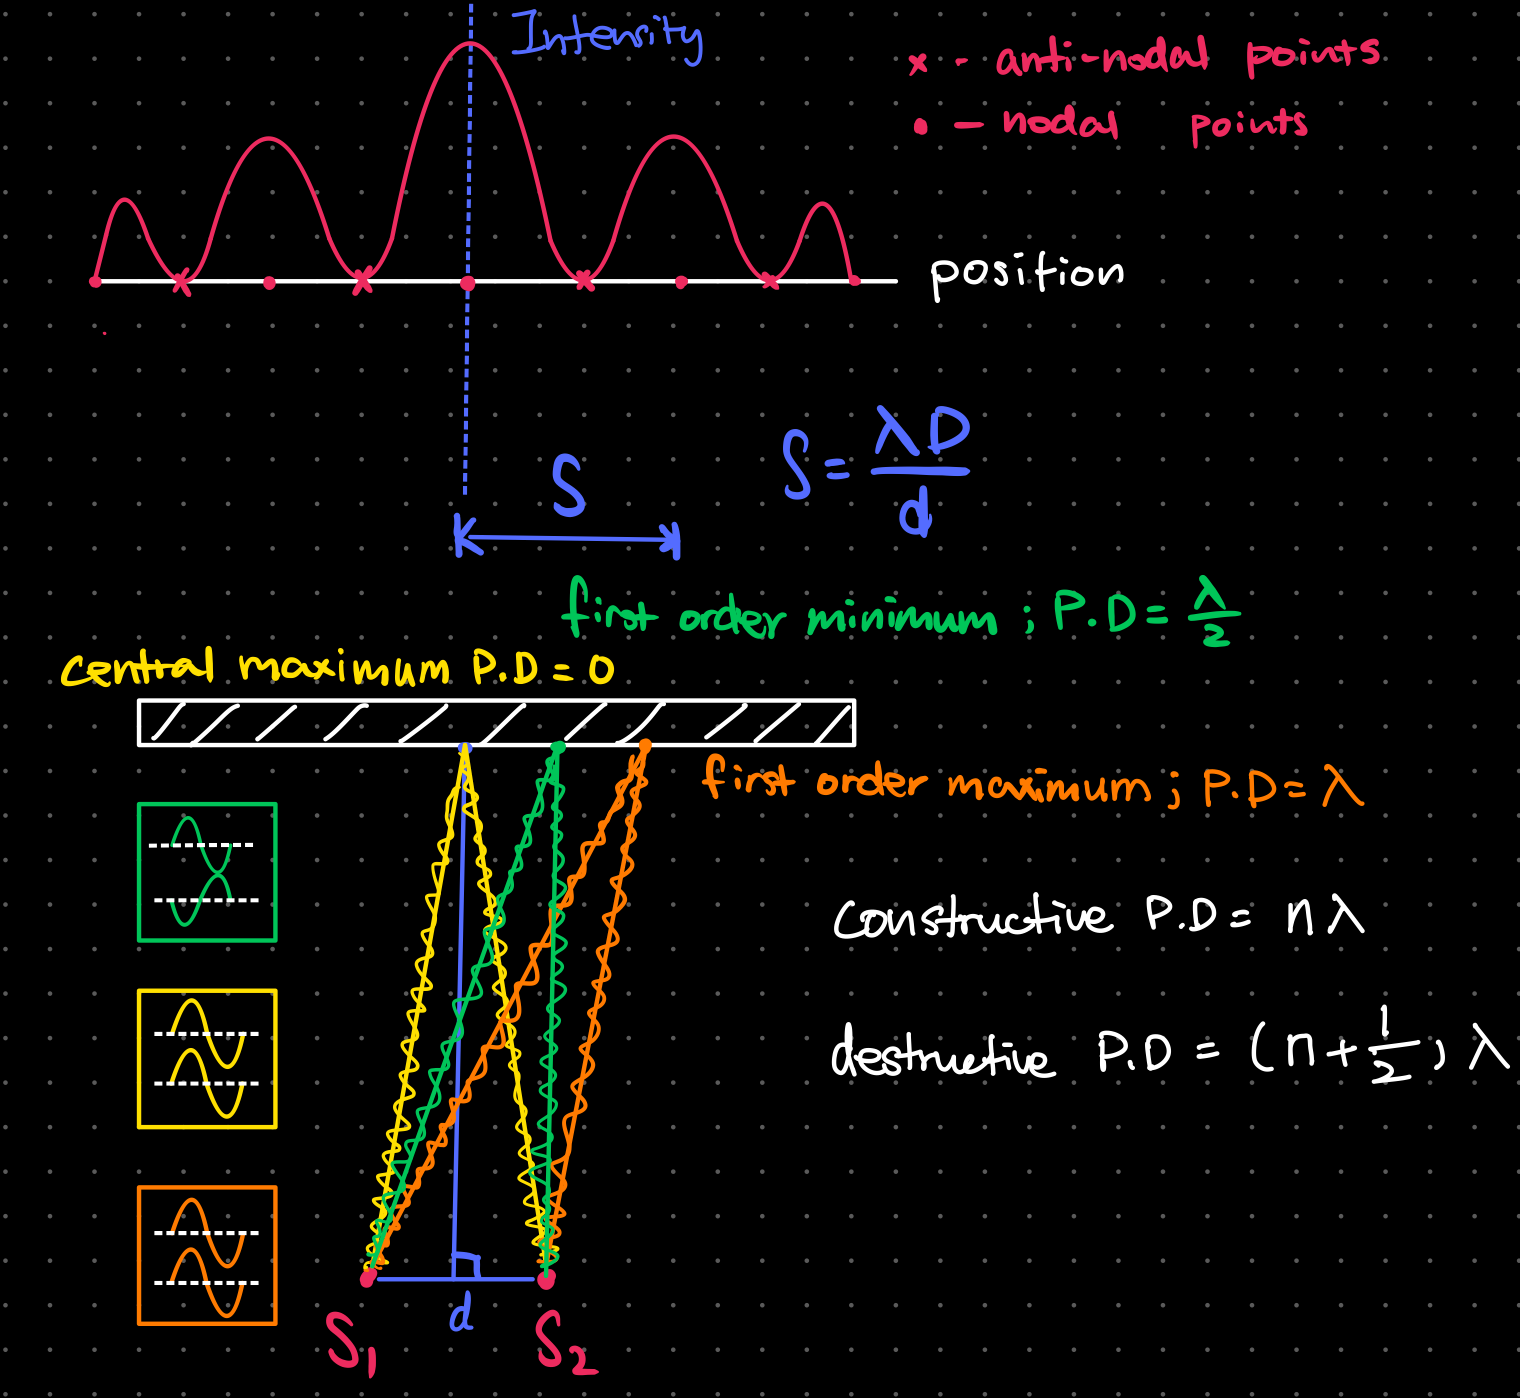 Intensity
x - anti-nodal points
• - nodal points
position
S
S = λD/d
first order minimum ; P.D = λ/2
central maximum P.D = 0
first order maximum ; P.D = λ
constructive P.D = nλ
destructive P.D = (n + 1/2) λ
d
S₁
S₂